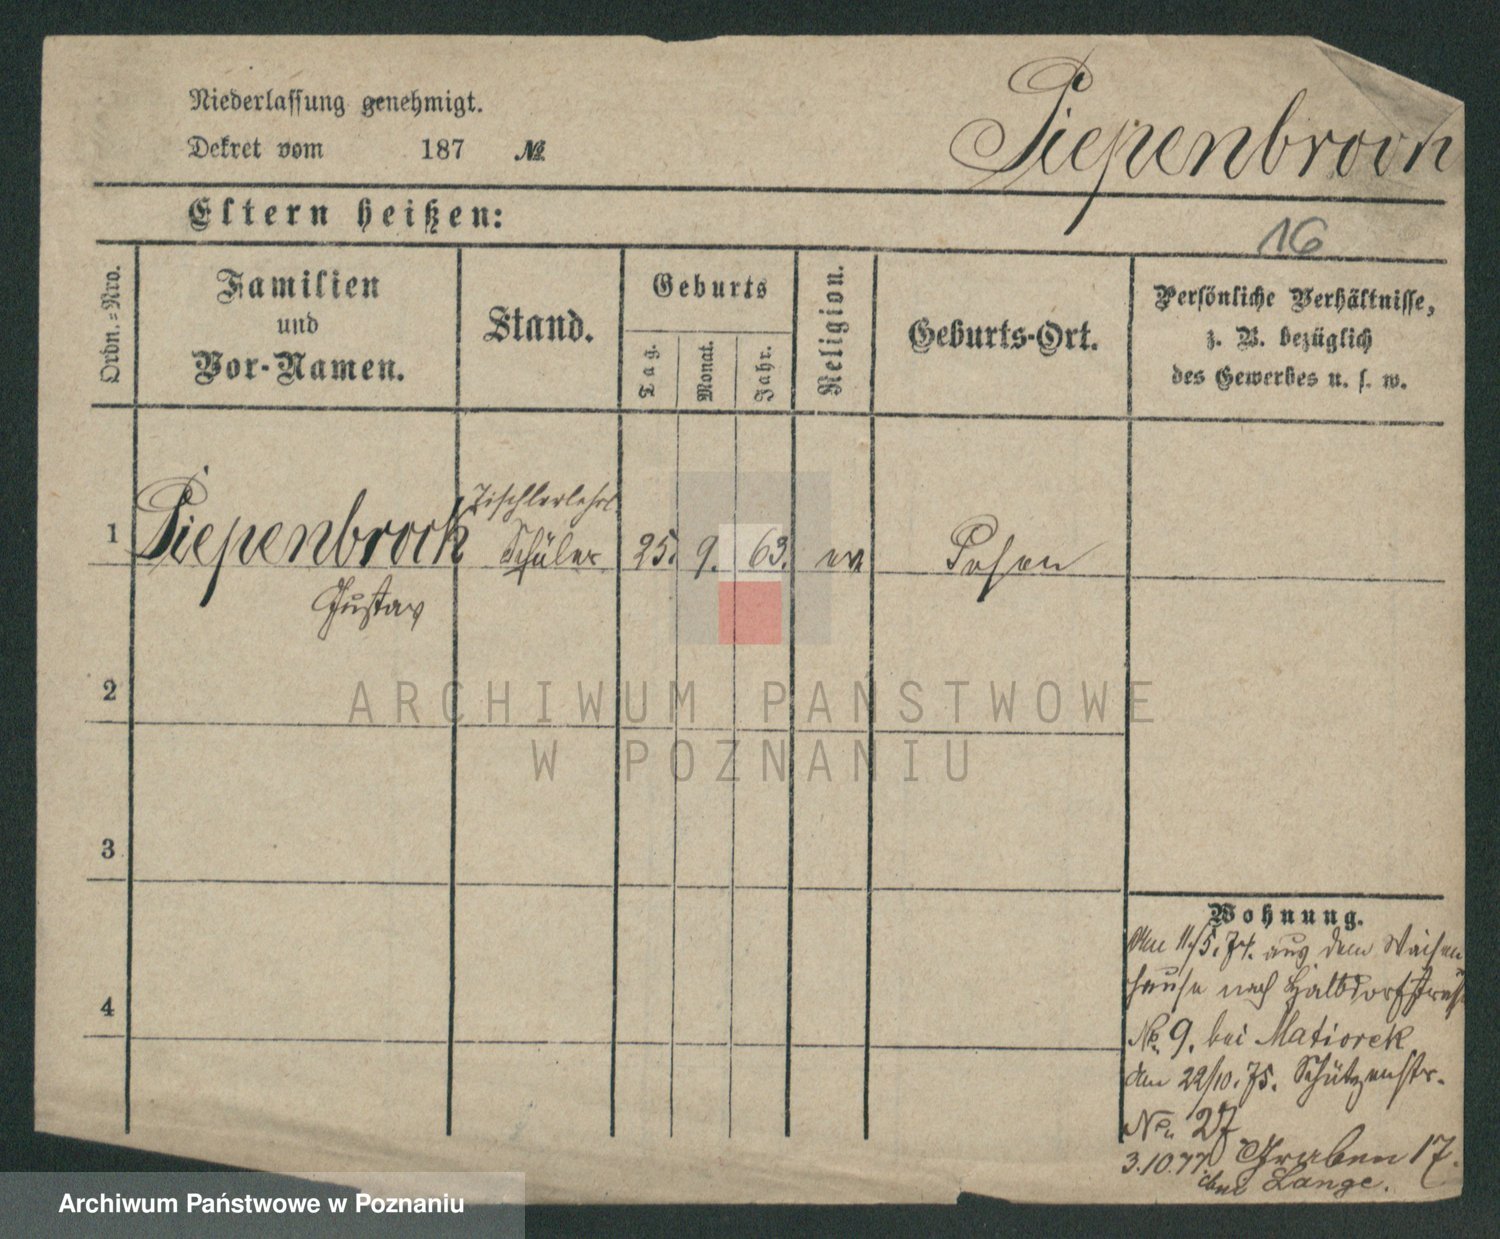 Niederlassung genehmigt.
Dekret vom 187 №
Piepenbrock
Eltern heißen:
16
Ordn.=Nro.
Familien
und
Vor-Namen.
Stand.
Geburts
Tag.
Monat.
Jahr.
Religion.
Geburts-Ort.
Persönliche Verhältnisse,
z. B. bezüglich
des Gewerbes u. s. w.
1 Piepenbrock Tischlerlehrl
Schüler 25. 9. 63. ev Posen
Gustav
2
ARCHIWUM PAŃSTWOWE
W POZNANIU
3
4
Wohnung.
Am 11/5. 74. aus dem Waisen
hause nach Halbdorfstraße
No. 9. bei Matiorek
am 22/10. 75. Schützenstr.
No. 27
3.10.77. Graben 17.
bei Lange.
Archiwum Państwowe w Poznaniu